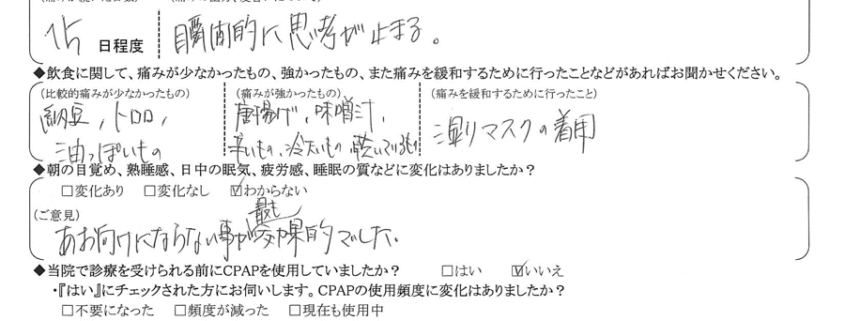 15 日程度
瞬間的に思考が止まる。
◆飲食に関して、痛みが少なかったもの、強かったもの、また痛みを緩和するために行ったことなどがあればお聞かせください。
(比較的痛みが少なかったもの)
納豆、トロロ、
油っぽいもの
(痛みが強かったもの)
唐揚げ、味噌汁、
辛いもの、冷たいもの、乾いている物
(痛みを緩和するために行ったこと)
湿りマスクの着用
◆朝の目覚め、熟睡感、日中の眠気、疲労感、睡眠の質などに変化はありましたか?
□変化あり □変化なし ☑わからない
(ご意見)
あお向けにならない事が最も効果的でした。
◆当院で診療を受けられる前にCPAPを使用していましたか? □はい ☑いいえ
・『はい』にチェックされた方にお伺いします。CPAPの使用頻度に変化はありましたか?
□不要になった □頻度が減った □現在も使用中